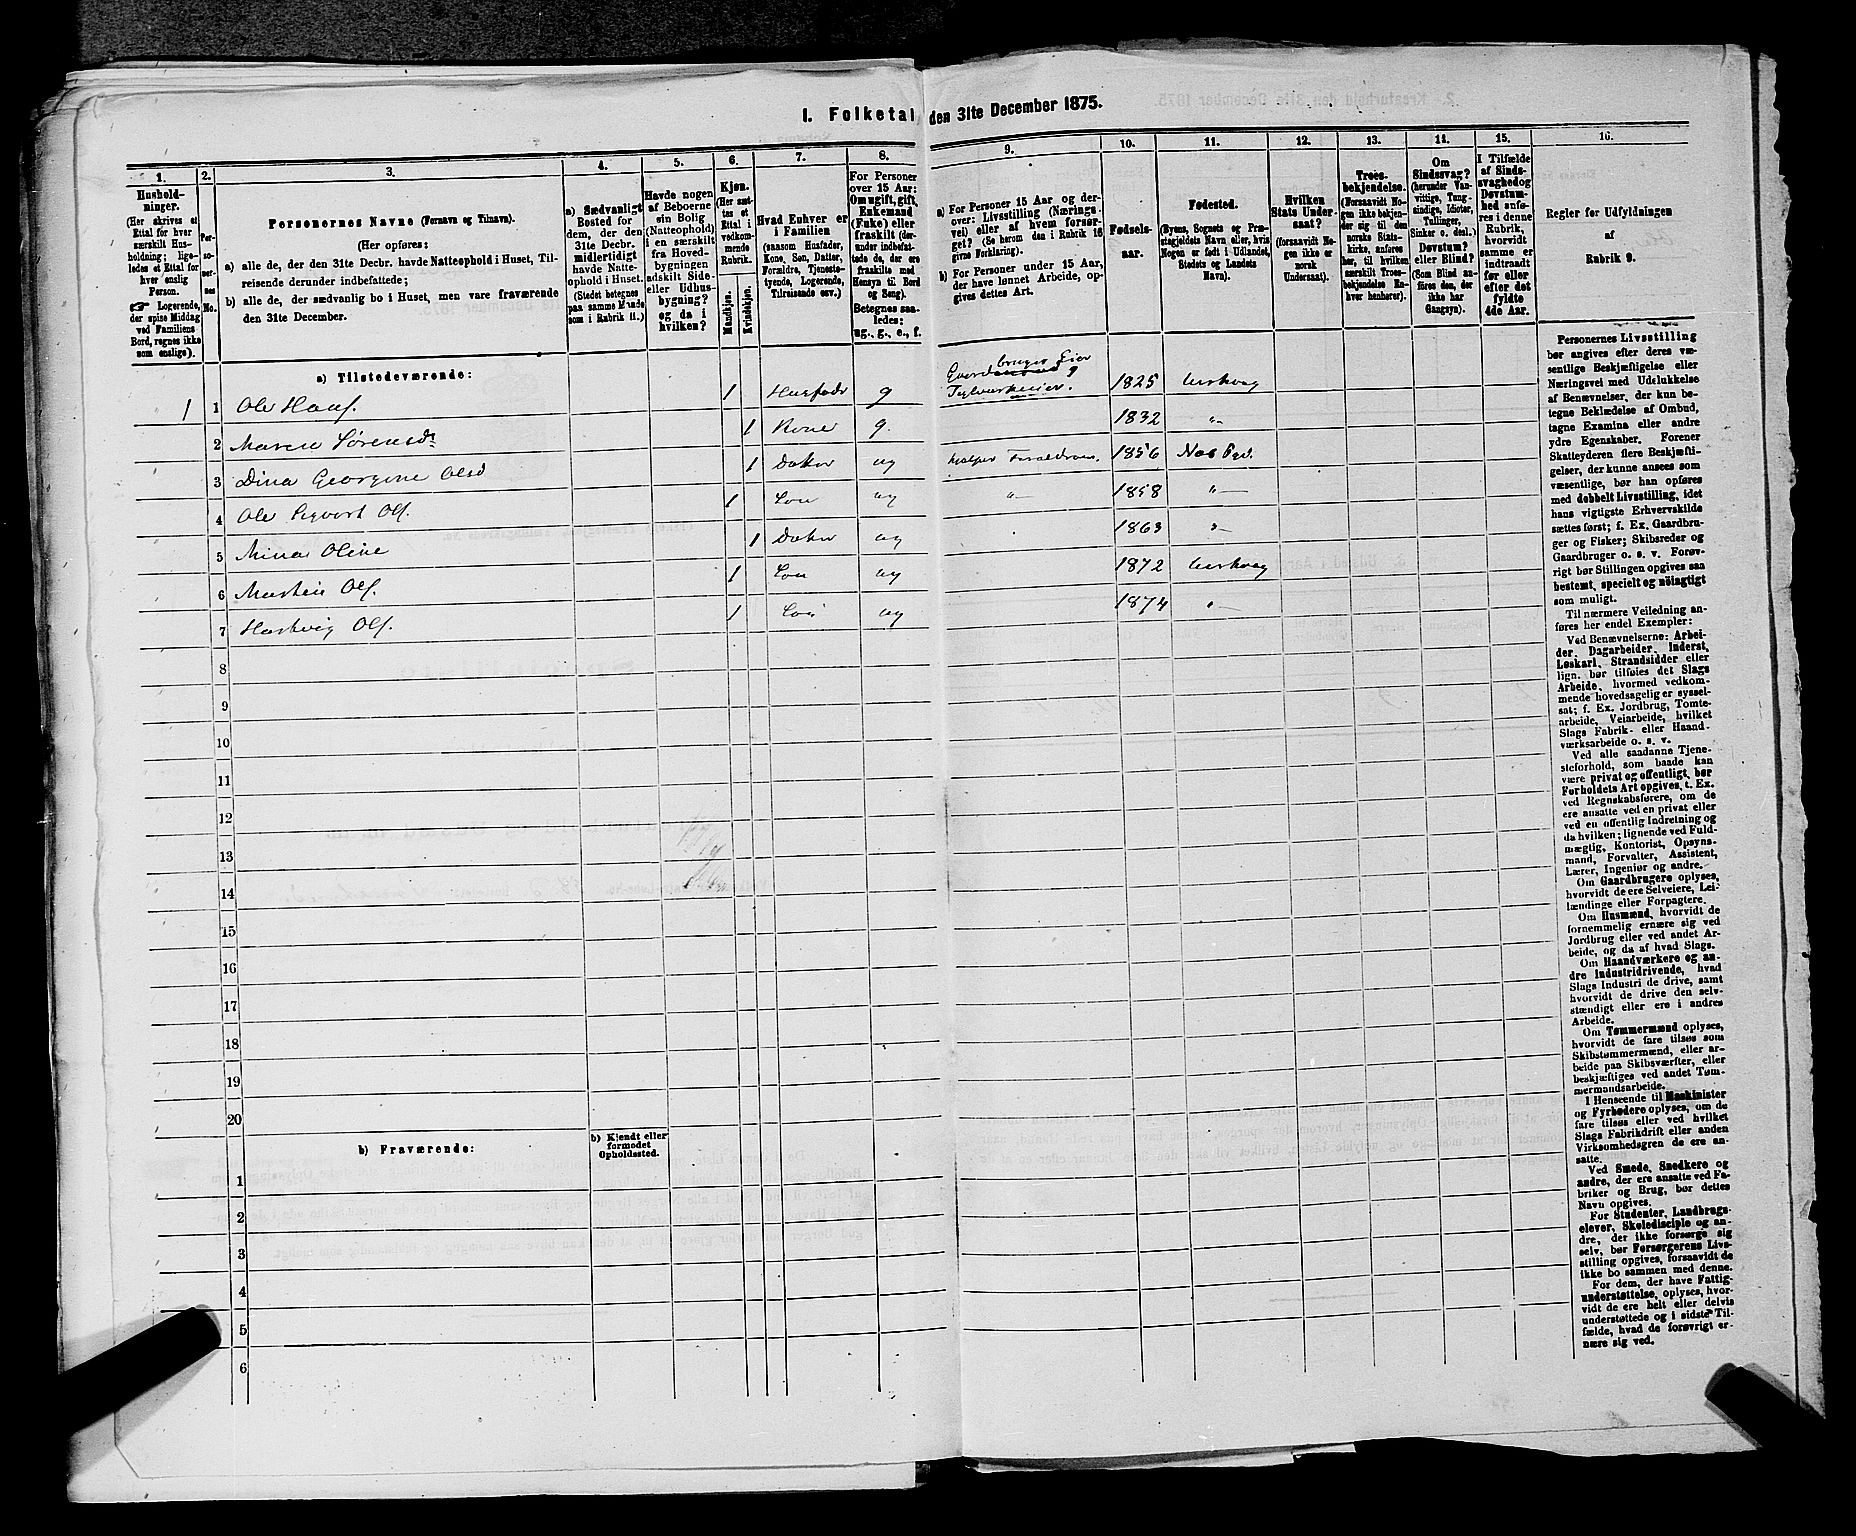 I. Folketal den 31te December 1875.
1. 2. 3. 4. 5. 6. 7. 8. 9. 10. 11. 12. 13. 14. 15. 16.
Hushold-
ninger.
(Her skrives et
Ettal for hver
særskilt Hus-
holdning; lige-
ledes et Ettal for
hver enslig
Person.
☞ Logerende,
der spise Middag
ved Familiens
Bord, regnes ikke
som enslige).
Per-
so-
ner-
nes
No.
Personernes Navne (Fornavn og Tilnavn).
(Her opføres:
a) alle de, der den 31te Decbr. havde Natteophold i Huset, Til-
reisende derunder indbefattede;
b) alle de, der sædvanlig bo i Huset, men vare fraværende
den 31te December.
a) Sædvanligt
Bosted for
dem, der den
31te Decbr.
midlertidigt
havde Natte-
ophold i Huset.
(Stedet betegnes
paa samme Maade
som i Rubrik 11.)
Havde nogen
af Beboerne
sin Bolig
(Natteophold)
i en særskilt
fra Hoved-
bygningen
adskilt Side-
eller Udhus-
bygning?
og da i
hvilken?
Kjøn.
(Her sæt-
tes et
Ettal i
vedkom-
mende
Rubrik.
Mandkjøn.
Kvindekjøn.
Hvad Enhver er
i Familien
(saasom Husfader,
Kone, Søn, Datter,
Forældre, Tjeneste-
tyende, Logerende,
Tilreisende osv.)
For Personer
over 15 Aar:
Om ugift, gift,
Enkemand
(Enke) eller
fraskilt (der-
under indbefat-
tede de, der ere
fraskilte med
Hensyn til Bord
og Seng).
Betegnes saa-
ledes:
ug., g., e., f.
a) For Personer 15 Aar og der-
over: Livsstilling (Nærings-
vei) eller af hvem forsør-
get? (Se herom den i Rubrik 16
givne Forklaring).
b) For Personer under 15 Aar,
der have lønnet Arbeide, op-
gives dettes Art.
Fødsels-
aar.
Fødested.
(Byens, Sognets og Præ-
stegjeldets Navn eller, hvis
Nogen er født i Udlandet,
Stedets og Landets
Navn).
Hvilken
Stats Under-
saat?
(forsaavidt No-
gen ikke er
norsk
Undersaat).
Troes-
bekjendelse.
(Forsaavidt No-
gen ikke bekjen-
der sig til den
norske Stats-
kirke, anføres
her, til hvilken
særskilt Troes-
bekjendelse En-
hver henhører).
Om
Sindssvag?
(herunder Van-
vittige, Tung-
sindige, Idioter,
Tullinger,
Sinker o. desl.)
Døvstum?
eller Blind?
(Som Blind an-
føres den, der
ikke har
Gangsyn).
I Tilfælde
af Sinds-
svaghed og
Døvstum-
hed anfø-
res i denne
Rubrik,
hvorvidt
samme er
indtraadt
før eller
efter det
fyldte
4de Aar.
Regler for Udfyldningen
af
Rubrik 9.
a) Tilstedeværende:
1 1 Ole Hans. 1 Husfader g Gaardbruger Eier Teglværkeier. 1825
2 Maren Sørensd. 1 Kone g. 1832 "-
3 Dina Georgine Olsd 1 Datter ug hjælper Forældrene. 1856
4 Ole Sigvart Ols. 1 Søn ug "- 1858 "-
5 Mina Oline 1 Datter ug 1863 "-
6 Martin Ols. 1 Søn ug 1872
7 Hartvig Ols. 1 Søn ug 1874 "-
8
9
10
11
12
13
14
15
16
17
18
19
20
b) Fraværende:
b) Kjendt eller
formodet
Opholdssted.
1
2
3
4
5
6
Personernes Livsstilling
bør angives efter deres væ-
sentlige Beskjæftigelse eller
Næringsvei med Udelukkelse
af Benævnelser, der kun be-
tegne Beklædelse af Ombud,
tagne Examina eller andre
ydre Egenskaber. Forener
Skatteyderen flere Beskjæfti-
gelser, der kunne ansees som
væsentlige, bør han opføres
med dobbelt Livsstilling, idet
hans vigtigste Erhvervskilde
sættes først; f. Ex. Gaardbru-
ger og Fisker; Skibsreder og
Gaardbruger o. s. v. Forøv-
rigt bør Stillingen opgives saa
bestemt, specielt og nöiagtigt
som muligt.
Til nærmere Veiledning an-
føres her endel Exempler:
Ved Benævnelserne: Arbei-
der, Dagarbeider, Inderst,
Løskarl, Strandsidder eller
lign. bør tilføies det Slags
Arbeide, hvormed vedkom-
mende hovedsagelig er syssel-
sat; f. Ex. Jordbrug, Tomte-
arbeide, Veiarbeide, hvilket
Slags Fabrik- eller Haand-
værksarbeide o. s. v.
Ved alle saadanne Tjene-
steforhold, som baade kan
være privat og offentligt, bør
Forholdets Art opgives, t. Ex.
ved Regnskabsførere, om de
ere ansatte ved en privat eller
ved en offentlig Indretning og
da hvilken; lignende ved Fuld-
mægtig, Kontorist, Opsyns-
mand, Forvalter, Assistent,
Lærer, Ingeniør og andre.
Om Gaardbrugere oplyses,
hvorvidt de ere Selveiere, Lei-
lændinge eller Forpagtere.
Om Husmænd, hvorvidt de
fornemmelig ernære sig ved
Jordbrug eller ved andet Ar-
beide, og da af hvad Slags.
Om Haandværkere og an-
dre Industridrivende, hvad
Slags Industri de drive, samt
hvorvidt de drive den selv-
stændigt eller ere i andres
Arbeide.
Om Tømmermænd oplyses,
hvorvidt de fare tilsøs som
Skibstømmermænd, eller ar-
beide paa Skibsværfter, eller
beskjæftiges ved andet Tøm-
mermandsarbeide.
I Henseende til Maskinister
og Fyrbødere oplyses, om de
fare tilsøs eller ved hvilket
Slags Fabrikdrift eller anden
Virksomhedsgren de ere an-
satte.
Ved Smede, Snedkere og
andre, der ere ansatte ved Fa-
briker og Brug, bør dettes
Navn opgives.
For Studenter, Landbrugs-
elever, Skoledisciple og an-
dre, der ikke forsørge sig
selv, bør Forsørgerens Livs-
stilling opgives, forsaavidt de
ikke bo sammen med denne.
For dem, der have Fattig-
understøttelse, oplyses, hvor-
vidt de ere helt eller delvis
understøttede og i sidste Til-
fælde, hvad de forøvrigt er-
nære sig ved.